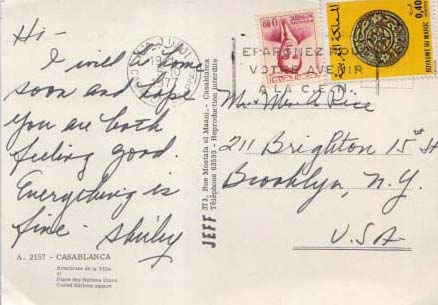 Hi -
I will be home
soon and hope
you are both
feeling good.
Everything is
fine. Shirley
A. 2157 - CASABLANCA
Armoiries de la Ville
et
Place des Nations Unies
United Nations square
JEFF 373, Rue Mostafa el Maani, - Casablanca
Téléphone 63593 - Reproduction interdite
EPARGNEZ POUR
VOTRE AVENIR
A LA C.E.N.
0.60
المملكة المغربية
ROYAUME DU MAROC
0,40
Mr & Mrs A Rice
211 Brighton 15th St
Brooklyn, N.Y.
U.S.A